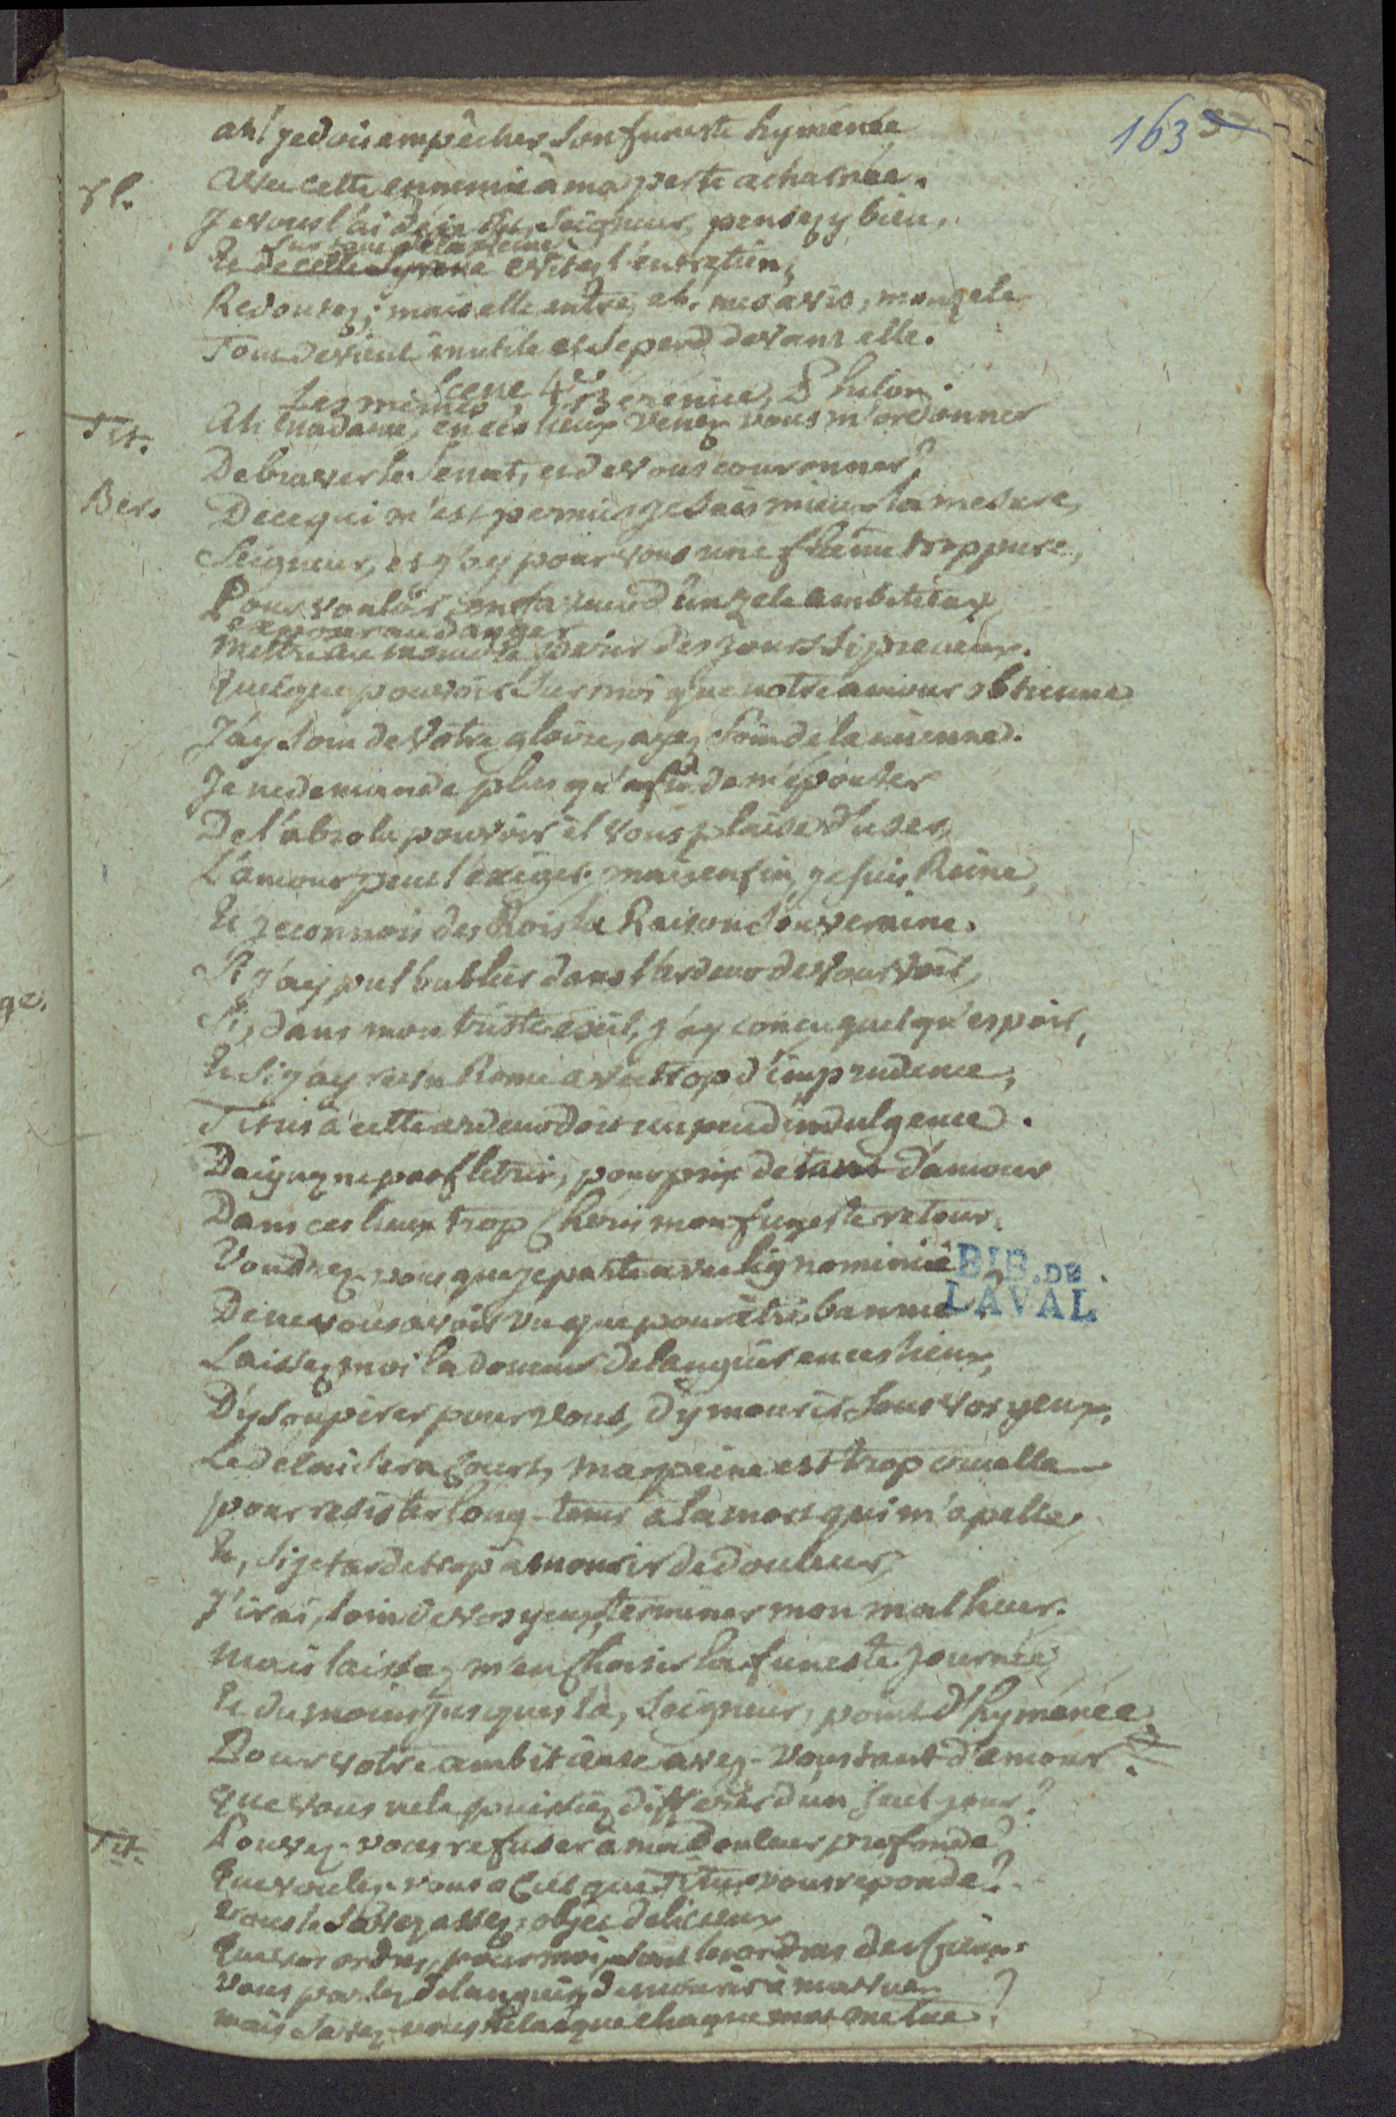 163
ah! je dois empêcher son funeste hyménée
avec cette ennemie à ma perte acharnée.
fl. Je vous l'ai déja dit, Seigneur, pensez y bien,
Sur tout de la Reine
Et de cette Syrene evitez l'entretien;
Redoutez; mais elle entre, eh, mes avis, mon zele
Tout devient inutile et se perd devant elle.
Scene 4e
Les mêmes, Bérénice, Philon.
Tit. Ah Madame, en ces lieux venez vous m'ordonner
De braver le Senat, et de vous couronner?
Ber. De ce qui m'est permis je sais mieux la mesure,
Seigneur, et j'ay pour vous une flâme trop pure,
Pour vouloir, en faveur d'un zele ambitieux
exposer au danger
Mettre au moindre peril des jours si precieux.
Quelque pouvoir sur moi que notre amour obtienne
J'ay soin de votre gloire, ayez soin de la mienne.
Je ne demande plus qu'afin de m'épouser
De l'absolu pouvoir il vous plaise d'user,
L'amour peut l'exiger; mais enfin, je suis Reine,
Et je connois des Rois la Raison souveraine.
Si j'ay pu l'oublier dans l'ardeur de vous voir,
Si, dans mon triste exil, j'ay conçu quelqu'espoir,
Et si j'ay revu Rome avec trop d'imprudence,
Titus à cette ardeur doit un peu d'indulgence.
Daignez ne pas fletrir, pour prix de tant d'amour
Dans ces lieux trop cheris mon funeste retour.
Voudriez-vous que je parte avec l'ignominie
De ne vous avoir vu que pour être bannie?
BIB. DE
LAVAL
Laissez moi la douceur de languir en ces lieux,
D'y soupirer pour vous, d'y mourir sous vos yeux.
Le delai sera court, ma peine est trop cruelle
pour resister long-tems à la mort qui m'apelle,
Et, si je tarde trop à mourir de douleur,
J'irai, loin de vos yeux, terminer mon malheur.
Mais laissez m'en choisir la funeste journée,
Et du moins jusques la, Seigneur, point d'hyménée.
Pour votre ambitieuse avez-vous tant d'amour
Que vous ne le puissiez differer d'un seul jour?
Pouvez-vous refuser à ma douleur profonde?
Tit. Que voulez-vous o Ciel que Titus vous reponde?
Vous le savez assez, objet delicieux
Que vos ordres, pour moi, sont les ordres des Cieux.
Vous parlez de languir, de mourir à ma vue
mais savez-vous helas que chaque mot me tue?